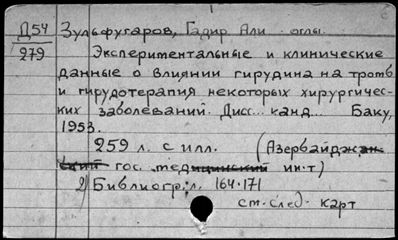 Д54
279
Зульфугаров, Гадир Али оглы.
Экспериментальные и клинические
данные о влиянии гирудина на тромб
и гирудотерапия некоторых хирургичес-
ких заболеваний. Дисс... канд... Баку,
1953.
259 л. с илл. (Азербайджан
гос. медицинский ин-т)
2) Библиогр.: л. 164-171
см. след. карт